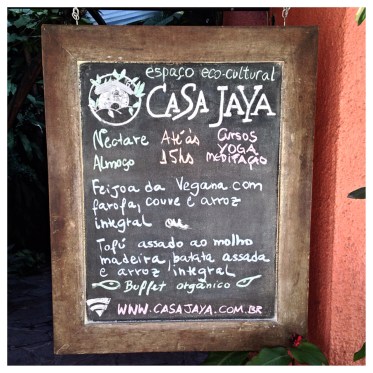 espaço eco-cultural
CASA JAYA
Néctare Até às Cursos
Almoço 15hs YOGA
MEDITAÇÃO
Feijoada Vegana com
farofa, couve e arroz
integral ou
Tofú assado ao molho
madeira, batata assada
e arroz integral
Buffet orgânico
WWW.CASAJAYA.COM.BR